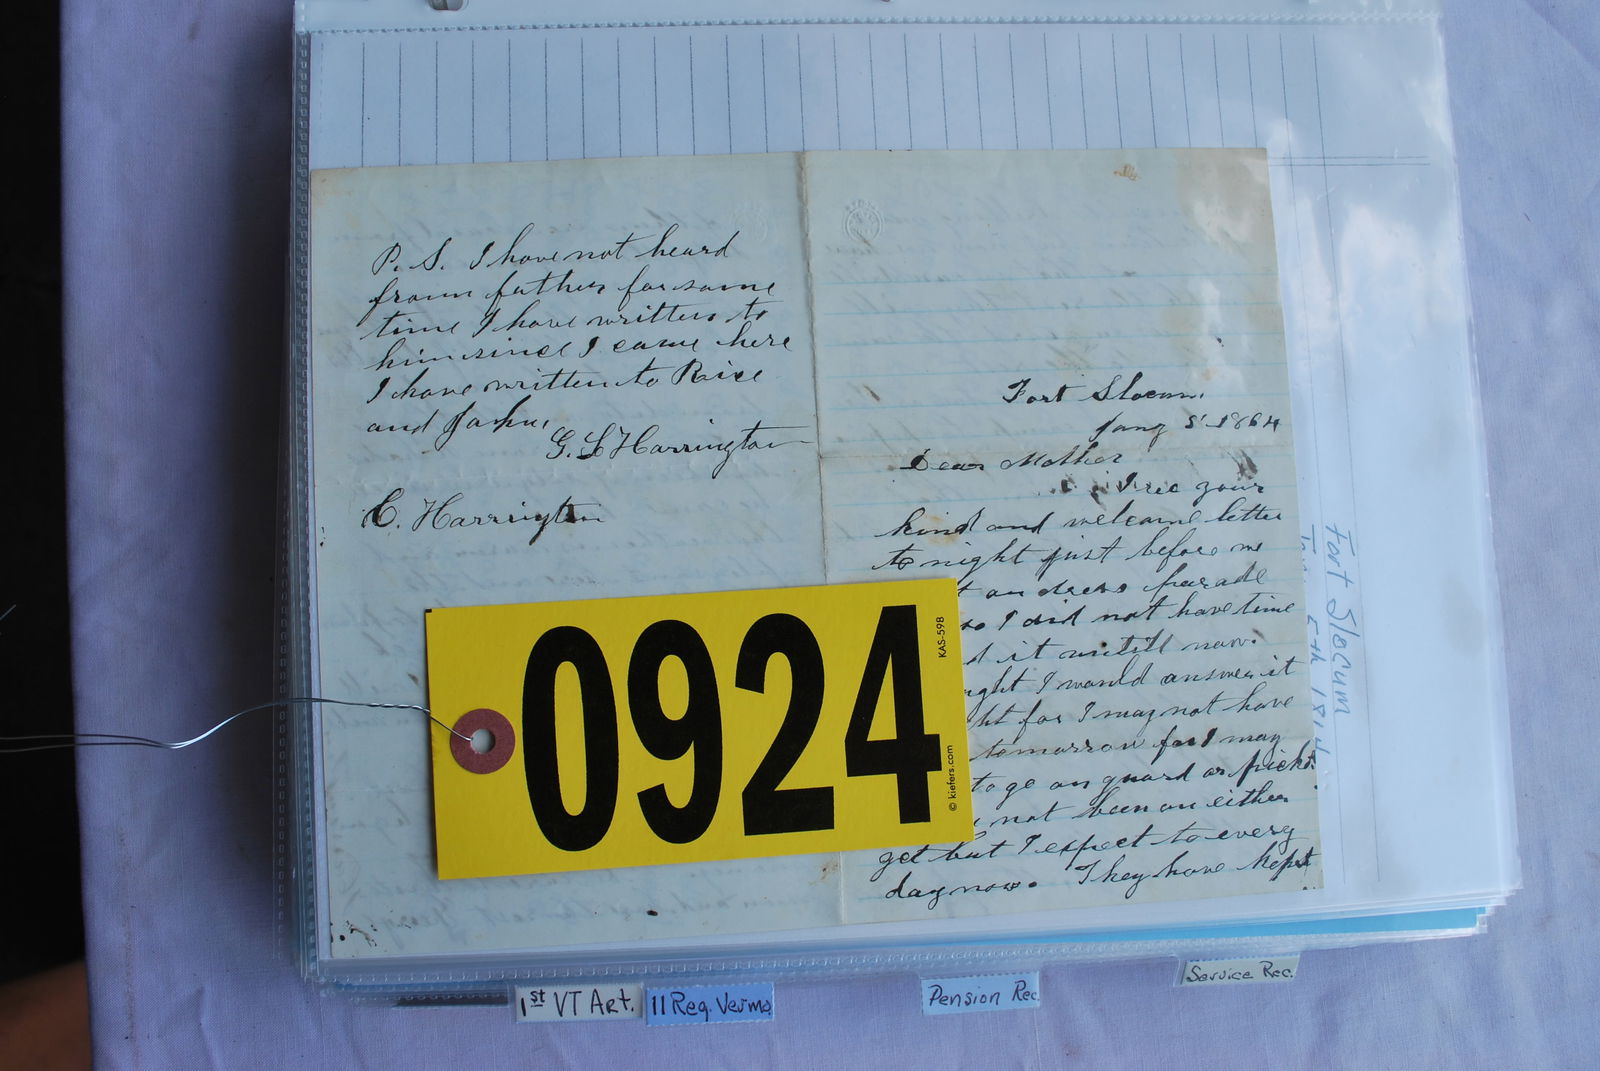 P. S. I have not heard
from father for some
time I have written to
him since I came here
I have written to Price
and John,
G. L Harrington
C. Harrington
Fort Slocum,
Jany 5 1864
Dear Mother
I rec your
kind and welcome letter
to night just before we
on dress parade
so I did not have time
it untill now.
I would answer it
for I may not have
tomorrow for I may
to go on guard or picket
not been on either
yet but I expect to every
day now. They have kept
0924
KAS-598
© kiefers.com
Fort Slocum
5th
1st VT Art.
11 Reg. Verm
Pension Rec.
Service Rec.